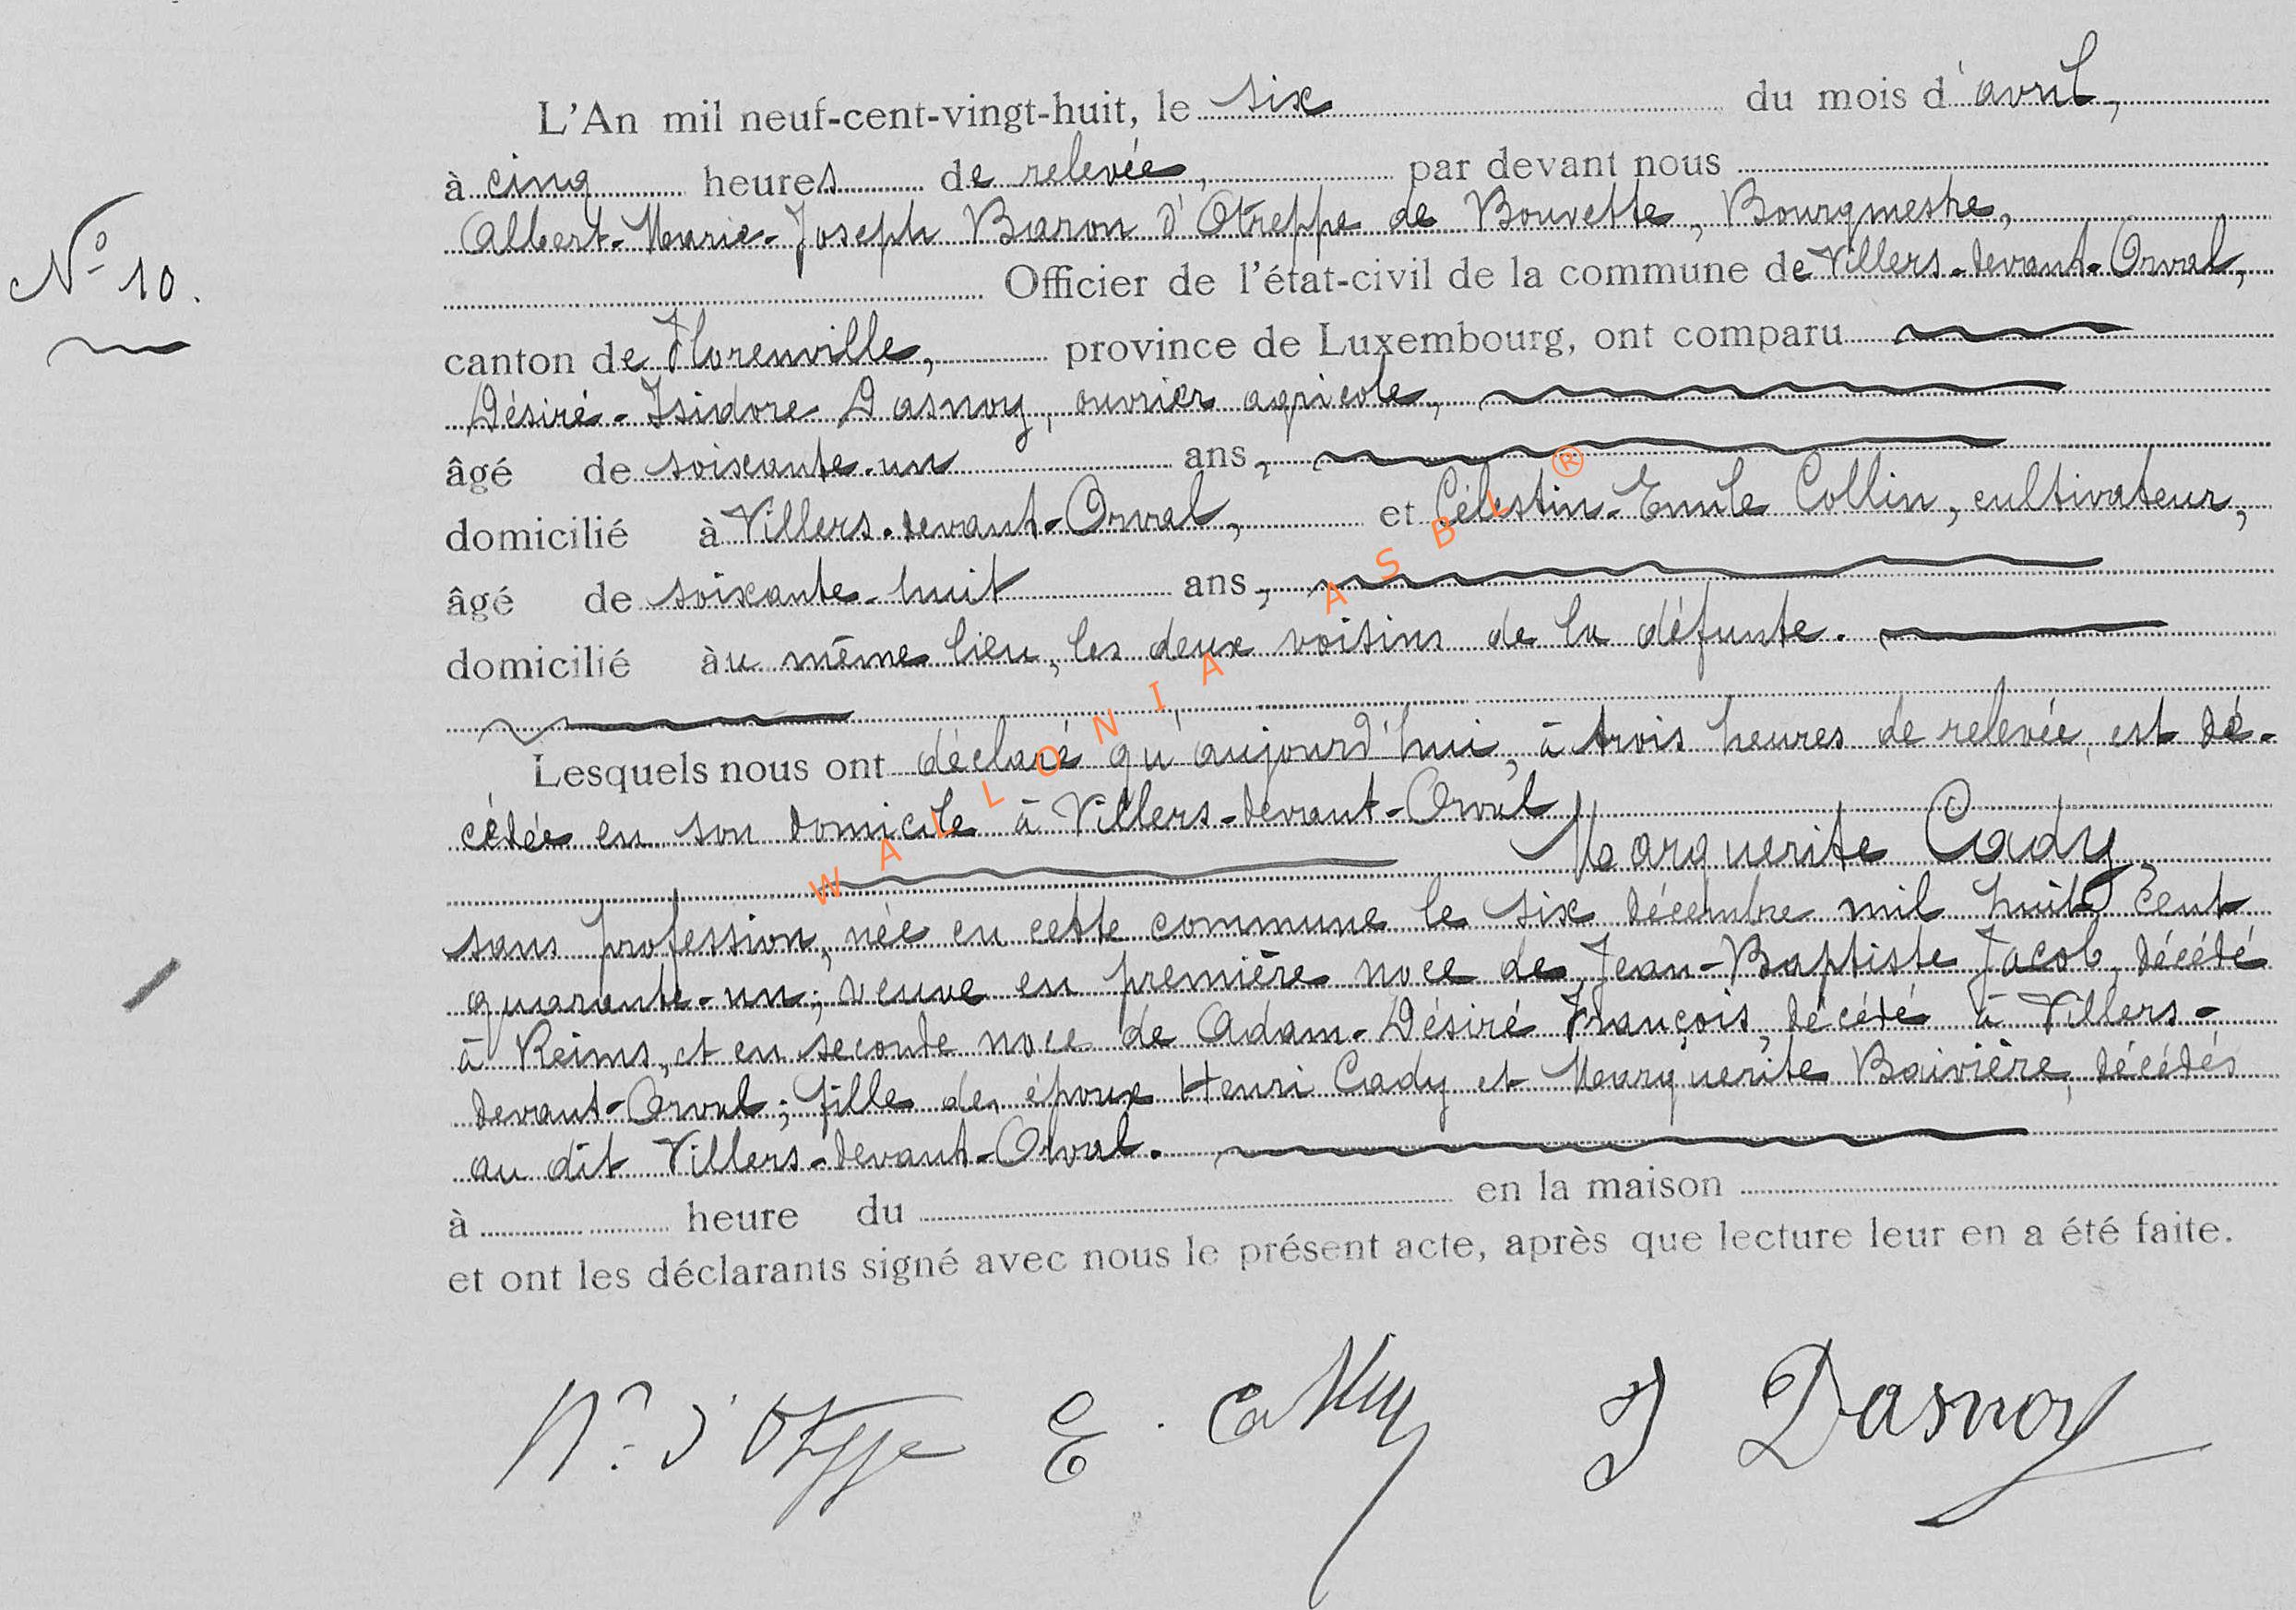 L'An mil neuf-cent-vingt-huit, le six du mois d'avril,
à cinq heures de relevée, par devant nous
Albert-Marie-Joseph Baron d'Otreppe de Bouvette, Bourgmestre,
N° 10.
Officier de l'état-civil de la commune de Villers-devant-Orval,
canton de Florenville, province de Luxembourg, ont comparu
Désiré-Isidore Dasnoy, ouvrier agricole,
âgé de soixante-un ans,
domicilié à Villers-devant-Orval, et Célestin-Emile Collin, cultivateur,
âgé de soixante-huit ans,
domicilié àu même lieu, les deux voisins de la défunte.
Lesquels nous ont déclaré qu'aujourd'hui, à trois heures de relevée, est dé-
cédée en son domicile à Villers-devant-Orval
Marguerite Cady,
sans profession, née en cette commune le six décembre mil huit cent
quarante-un; veuve en première noce de Jean-Baptiste Jacob, décédé
à Reims, et en seconde noce de Adam-Désiré François, décédé à Villers-
devant-Orval; fille des époux Henri Cady et Marguerite Baivière, décédés
au dit Villers-devant-Orval.
à heure du en la maison
et ont les déclarants signé avec nous le présent acte, après que lecture leur en a été faite.
d'Otreppe E. Collin D Dasnoy
WALLONIA ASBL ®